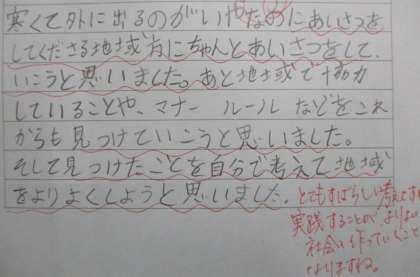 寒くて外に出るのがいやなのにあいさつを
してくださる地域方にちゃんとあいさつをして、
いこうと思いました。あと地域で協力
していることや、マナー ルール などをこれ
からも見つけていこうと思いました。
そして見つけたことを自分で考えて地域
をよりよくしようと思いました。
とてもすばらしい考えです
実践することがよりよい
社会を作っていくこと
なりますね。